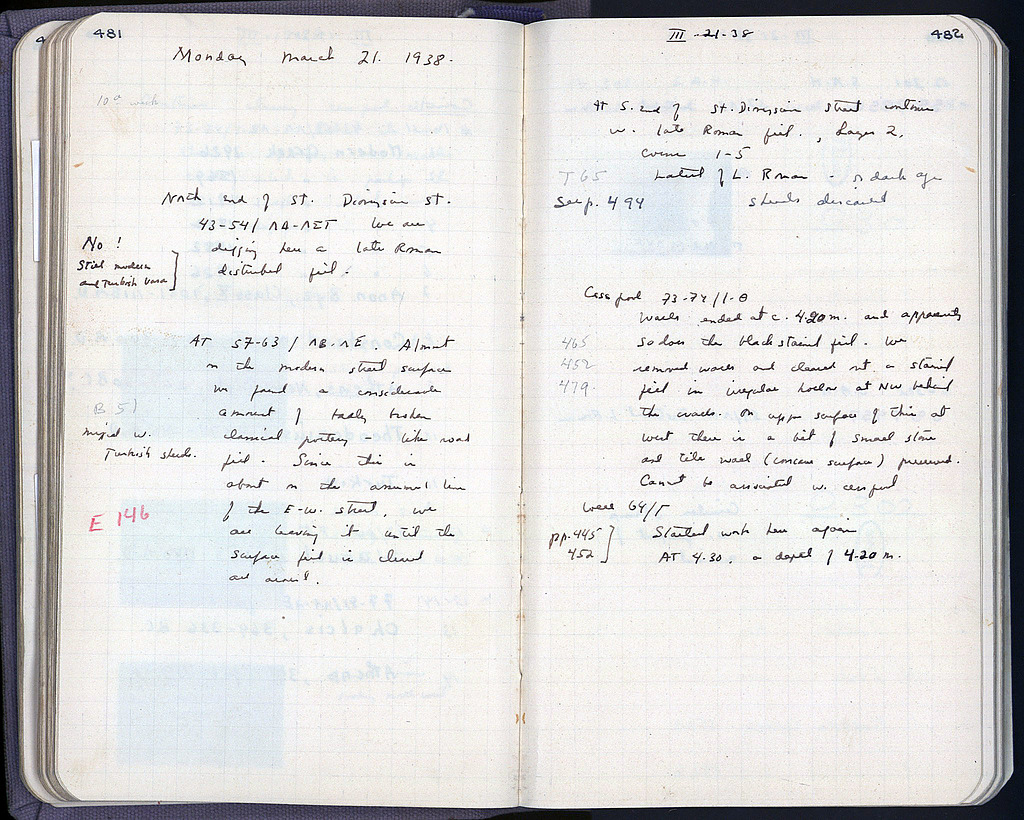 481
Monday March 21. 1938.
10th week
North end of St. Dionysian St.
43-54/ ΛΑ-ΛΣΤ We are
digging here a late Roman
disturbed fill.
No!
Still modern
and Turkish here
AT 57-63 / ΛΒ-ΛΕ Almost
on the modern street surface
we found a considerable
amount of badly broken
classical pottery - like road
fill. Since this is
about on the assumed line
of the E-W. street, we
are leaving it until the
surface fill is cleared
all around.
B 51
mixed w.
Turkish sherds.
E 146
III -21-38
482
At S. end of St. Dionysian street continue
w. late Roman fill, Layer 2,
coins 1-5
T 65 Latest of L. Roman - or dark age
See p. 494 sherds discarded
Cess pool 73-74/1-Θ
Walls ended at c. 4.20 m. and apparently
465 so does the black stained fill. We
452 removed walls and cleared out a stained
479. fill in irregular hollow at NW behind
the walls. On upper surface of this at
west there is a bit of small stone
and tile wall (concave surface) preserved.
Cannot be associated w. cesspool
Well 64/Γ
pp. 445
452
Started work here again
AT 4.30. a depth of 4.20 m.